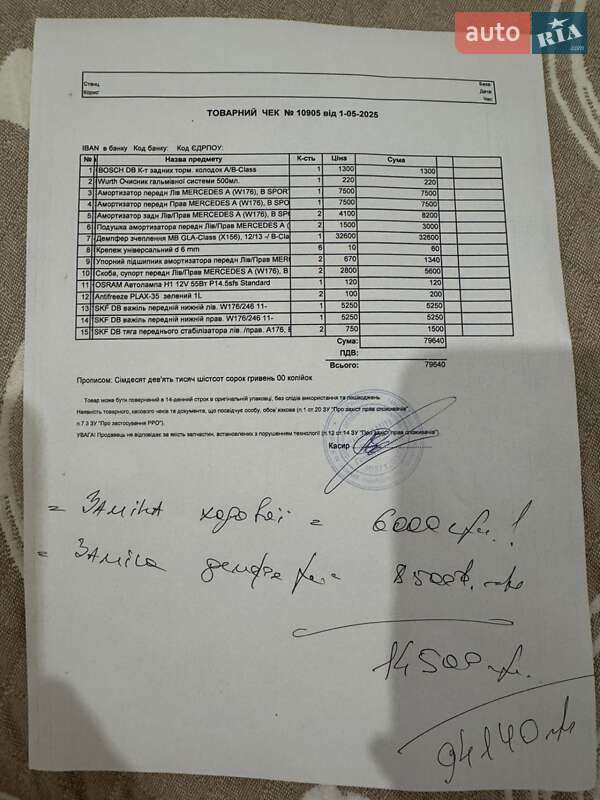 auto RIA.com
Станц База:
Корист Дата:
Час:
ТОВАРНИЙ ЧЕК № 10905 від 1-05-2025
IBAN в банку Код банку: Код ЄДРПОУ:
№ Назва предмету К-сть Ціна Сума
1 BOSCH DB К-т задних торм. колодок A/B-Class 1 1300 1300
2 Wurth Очисник гальмівної системи 500мл. 1 220 220
3 Амортизатор передн Лів MERCEDES A (W176), B SPOR 1 7500 7500
4 Амортизатор передн Прав MERCEDES A (W176), B SPO 1 7500 7500
5 Амортизатор задн Лів/Прав MERCEDES A (W176), B SPO 2 4100 8200
6 Подушка амортизатора передн Лів/Прав MERCEDES A ( 2 1500 3000
7 Демпфер зчеплення MB GLA-Class (X156), 12/13 -/ B-Cla 1 32600 32600
8 Крепеж універсальний d 6 mm 6 10 60
9 Упорний підшипник амортизатора передн Лів/Прав MERC 2 670 1340
10 Скоба, супорт передн Лів/Прав MERCEDES A (W176), B 2 2800 5600
11 OSRAM Автолампа H1 12V 55Вт P14.5sfs Standard 1 120 120
12 Antifreeze PLAX-35 зелений 1L 2 100 200
13 SKF DB важіль передній нижній лів. W176/246 11- 1 5250 5250
14 SKF DB важіль передній нижній прав. W176/246 11- 1 5250 5250
15 SKF DB тяга переднего стабілізатора лів. /прав. A176, 2 750 1500
Сума: 79640
ПДВ:
Всього: 79640
Прописом: Сімдесят дев'ять тисяч шістсот сорок гривень 00 копійок
Товар може бути повернений в 14-денний строк в оригінальній упаковці, без слідів використання та пошкоджень.
Наявність товарного, касового чеків та документа, що посвідчує особу, обов'язкова (п.1 ст.20 ЗУ "Про захист прав споживачів",
п.7.3 ЗУ "Про застосування РРО").
УВАГА! Продавець не відповідає за якість запчастин, встановлених з порушенням технології (п.12 ст.14 ЗУ "Про захист прав споживачів").
Касир
= Заміна ходової = 6000 грн.!
= Заміна демпфера 8500 грн
14500 грн.
94140 грн